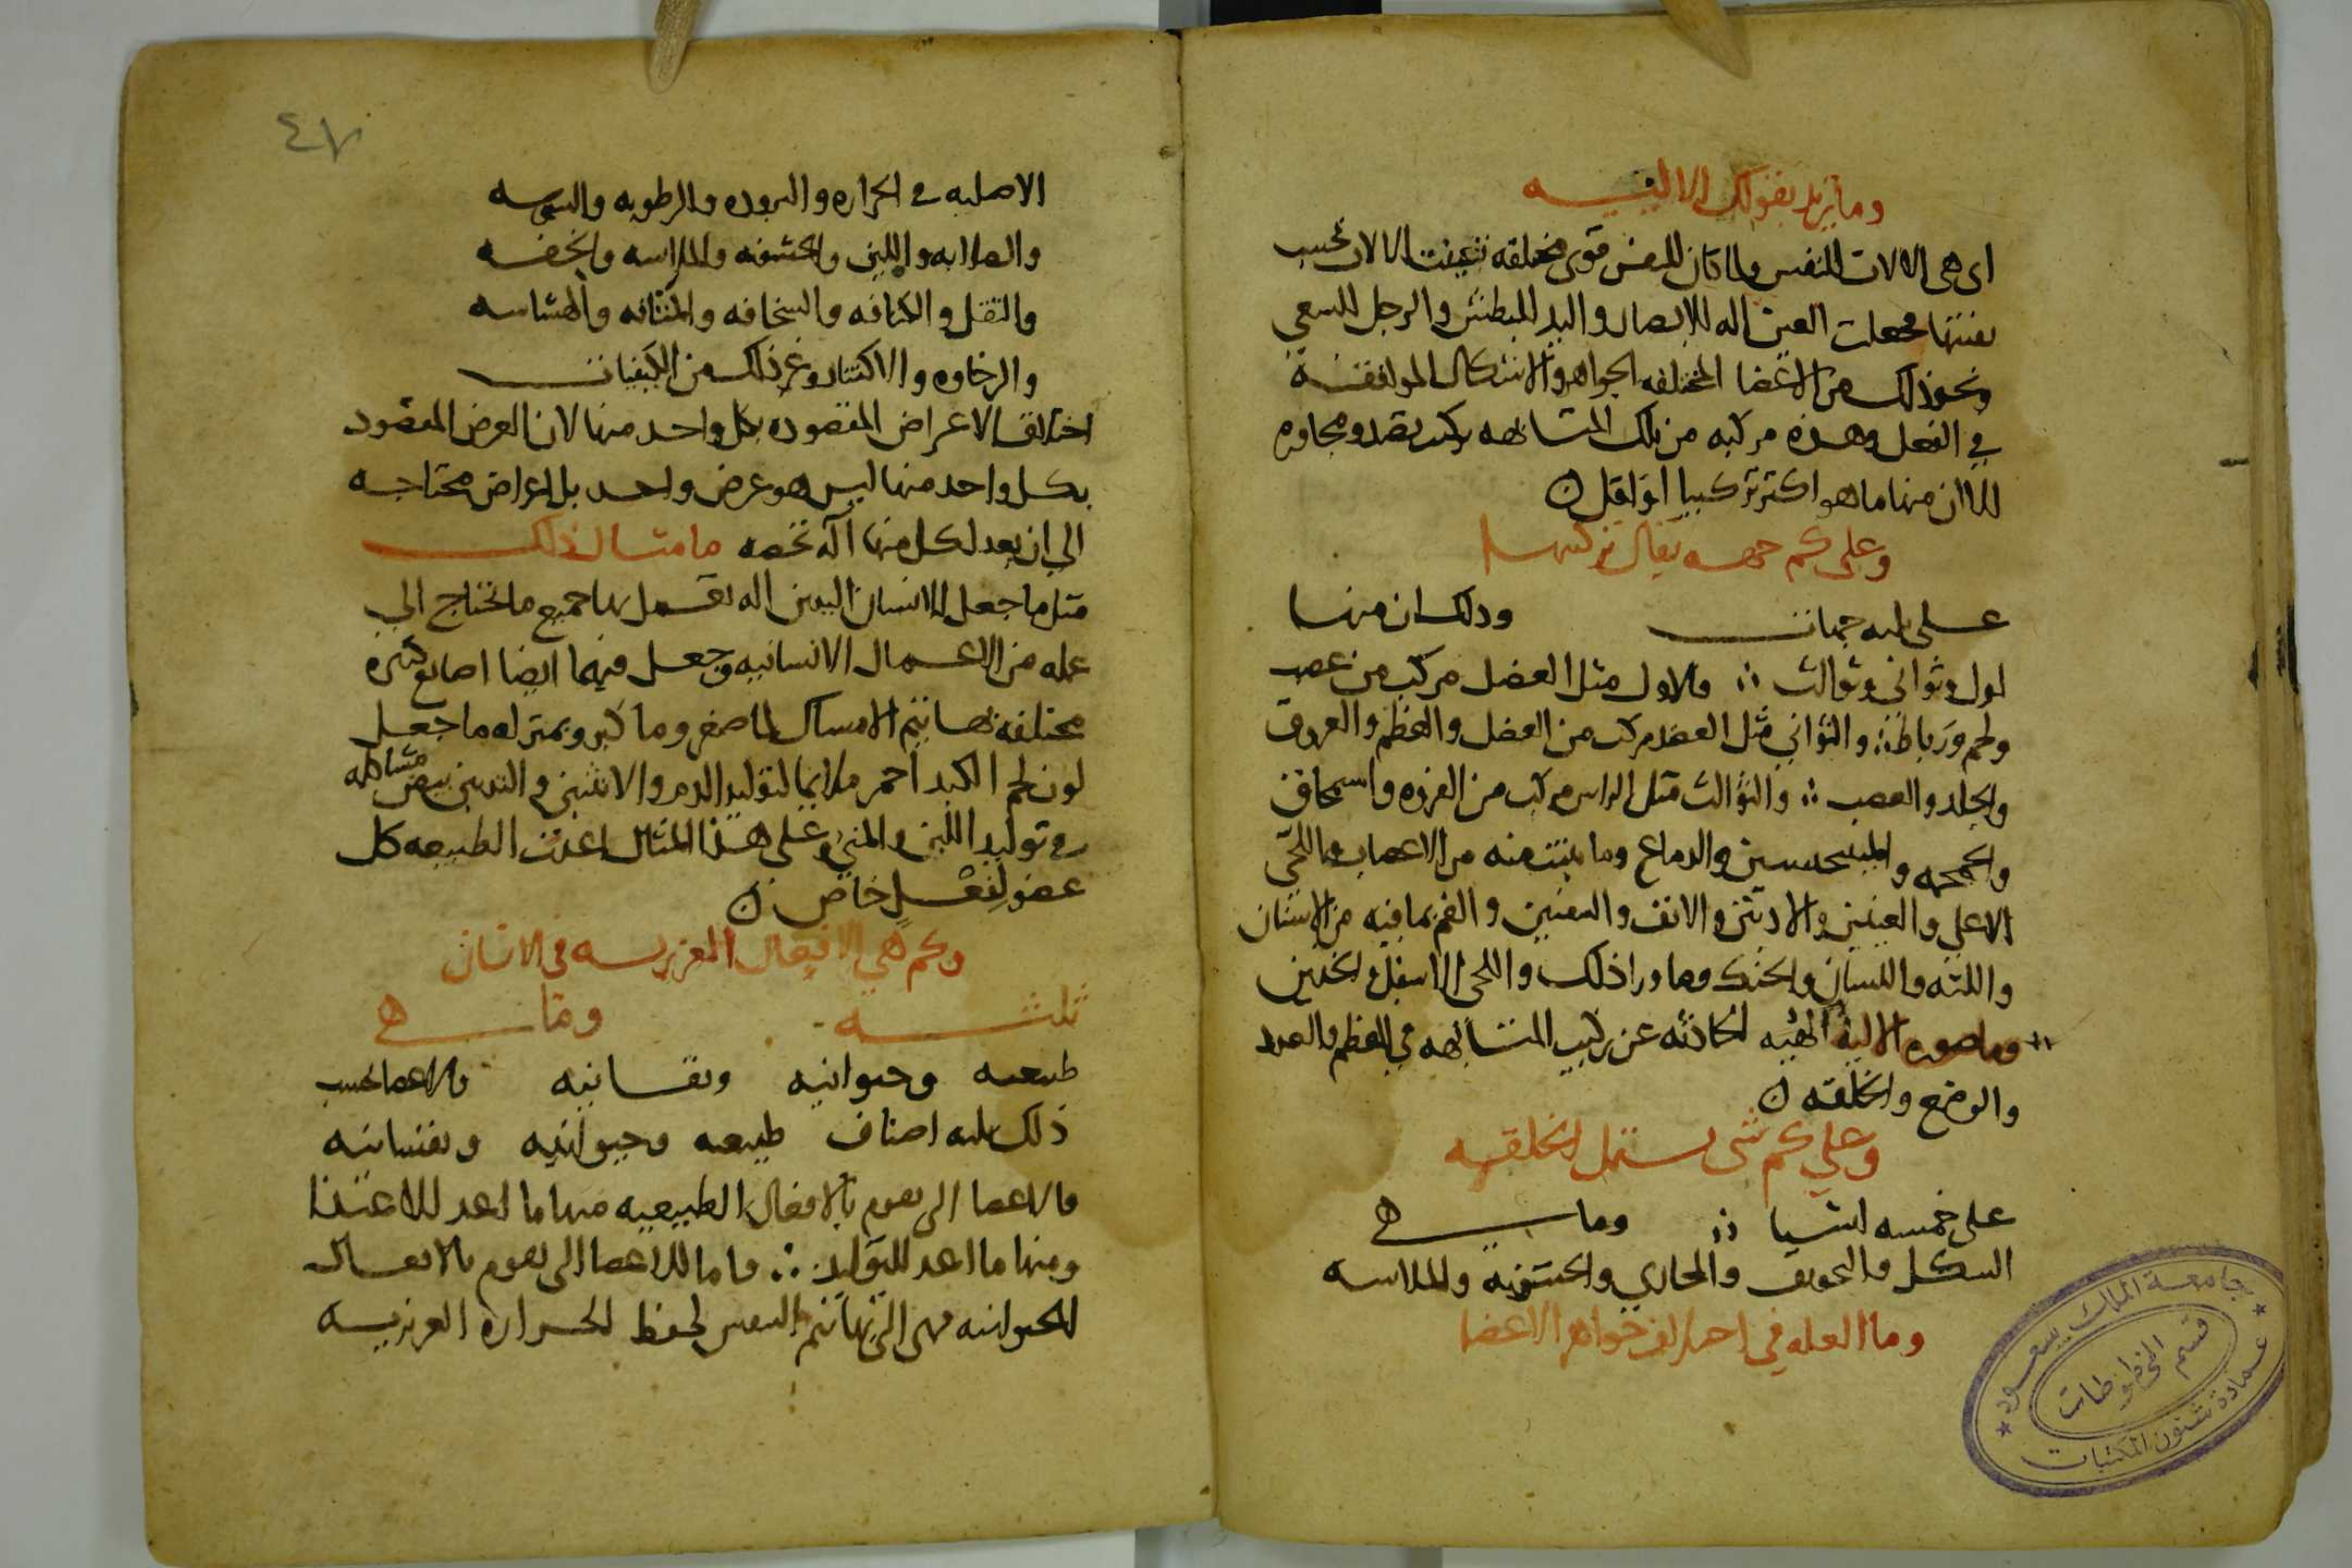 وما تريد بقولك الاليه
اى هى الالات للنفس ولما كان للنفس قوى مختلفه تفننت الالات بحسب
تفننها فجعلت العين اله للابصار واليد للبطش والرجل للسعي
ونحو ذلك من الاعضا المختلفه الجواهر والاشكال الموافقة
في الفعل وهذه مركبه من تلك المتشابهه تركيب قصد ومجاوره
الا ان منها ما هو اكثر تركيبا او اقل ن
وعلى كم جهه يقال تركيبها
على ثلثه جهات وذلك ان منها
اول وثوانى وثوالث ⁘ والاول مثل العضل مركب من عصب
ولحم ورباط ⁘ والثواني مثل العضد مركب من العضل والعظم والعروق
والجلد والعصب ⁘ والثوالث مثل الراس مركب من الفروه واسمحاق
والجمجمه والدماغ وما ينبت منه من الاعصاب واللحى
الاعلى والعينين والاذنين والانف والفم بما فيه من الاسنان
واللثه واللسان والحنك وما ورا ذلك واللحى الاسفل والخدين
وما صوره الاليه الهيه الحادثه عن تركيب المتشابهه في العظم والعدد
والوضع والخلقه ن
وعلي كم شى تشتمل الخلقه
على خمسه اشيا ⁘ وما هي
الشكل والتجويف والمجاري والخشونه والملاسه
وما العله في اختلاف جواهر الاعضا
جامعة الملك سعود
قسم المخطوطات
عمادة شئون المكتبات
٤٧
الاصليه في الحراره والبروده والرطوبه واليبوسه
والصلابه واللين والخشونه والملاسه والخفه
والثقل والكثافه والسخافه والمتانه والهشاشه
والرخاوه والاكتناز وغير ذلك من الكيفيات
اختلاف الاعراض المقصوده بكل واحد منها لان العرض المقصود
بكل واحد منها ليس هو عرض واحد بل اعراض محتاجه
الي ان يعد لكل منها آلة تخصه ما مثال ذلك
مثل ما جعل للانسان اليدين اله تعمل بها جميع ما تحتاج الى
عمله من الاعمال الانسانيه وجعل فيهما ايضا اصابع كثيره
مختلفه بها يتم الامساك لما صغر وما كبر وبمنزله ما جعل
لون لحم الكبد احمر ملايما لتوليد الدم والانثيين والثديين بيض مشاكله
في توليد اللبن والمني وعلى هذا المثال اعدت الطبيعه كل
عضو لفعل خاص ن
وكم هي الافعال الغزيريه فى الانسان
ثلثه وما هي
طبيعيه وحيوانيه ونفسانيه والاعضا بحسب
ذلك ثلثه اصناف طبيعيه وحيوانيه ونفسانيه
فالاعضا التى تقوم بالافعال الطبيعيه منها ما اعد للاغتذا
ومنها ما اعد للتوليد ⁘ واما الاعضا التى تقوم بالافعال
الحيوانيه فهى التى بها يتم التنفس لحفظ الحراره الغزيريه